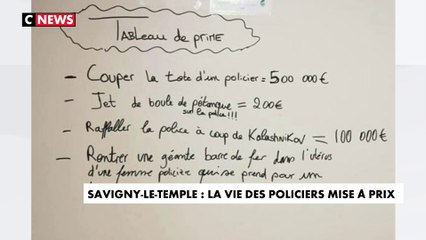 CNEWS
TABLEAU DE PRIME
- Couper la tete d'un policier = 500 000€
- Jet de boule de pétanque = 200€
sur la police!!!
- Raffaller la police à coup de Kalashnikov = 100 000€
- Rentrer une géante barre de fer dans l'utérus
d'une femme policière qui se prend pour un
SAVIGNY-LE-TEMPLE : LA VIE DES POLICIERS MISE À PRIX